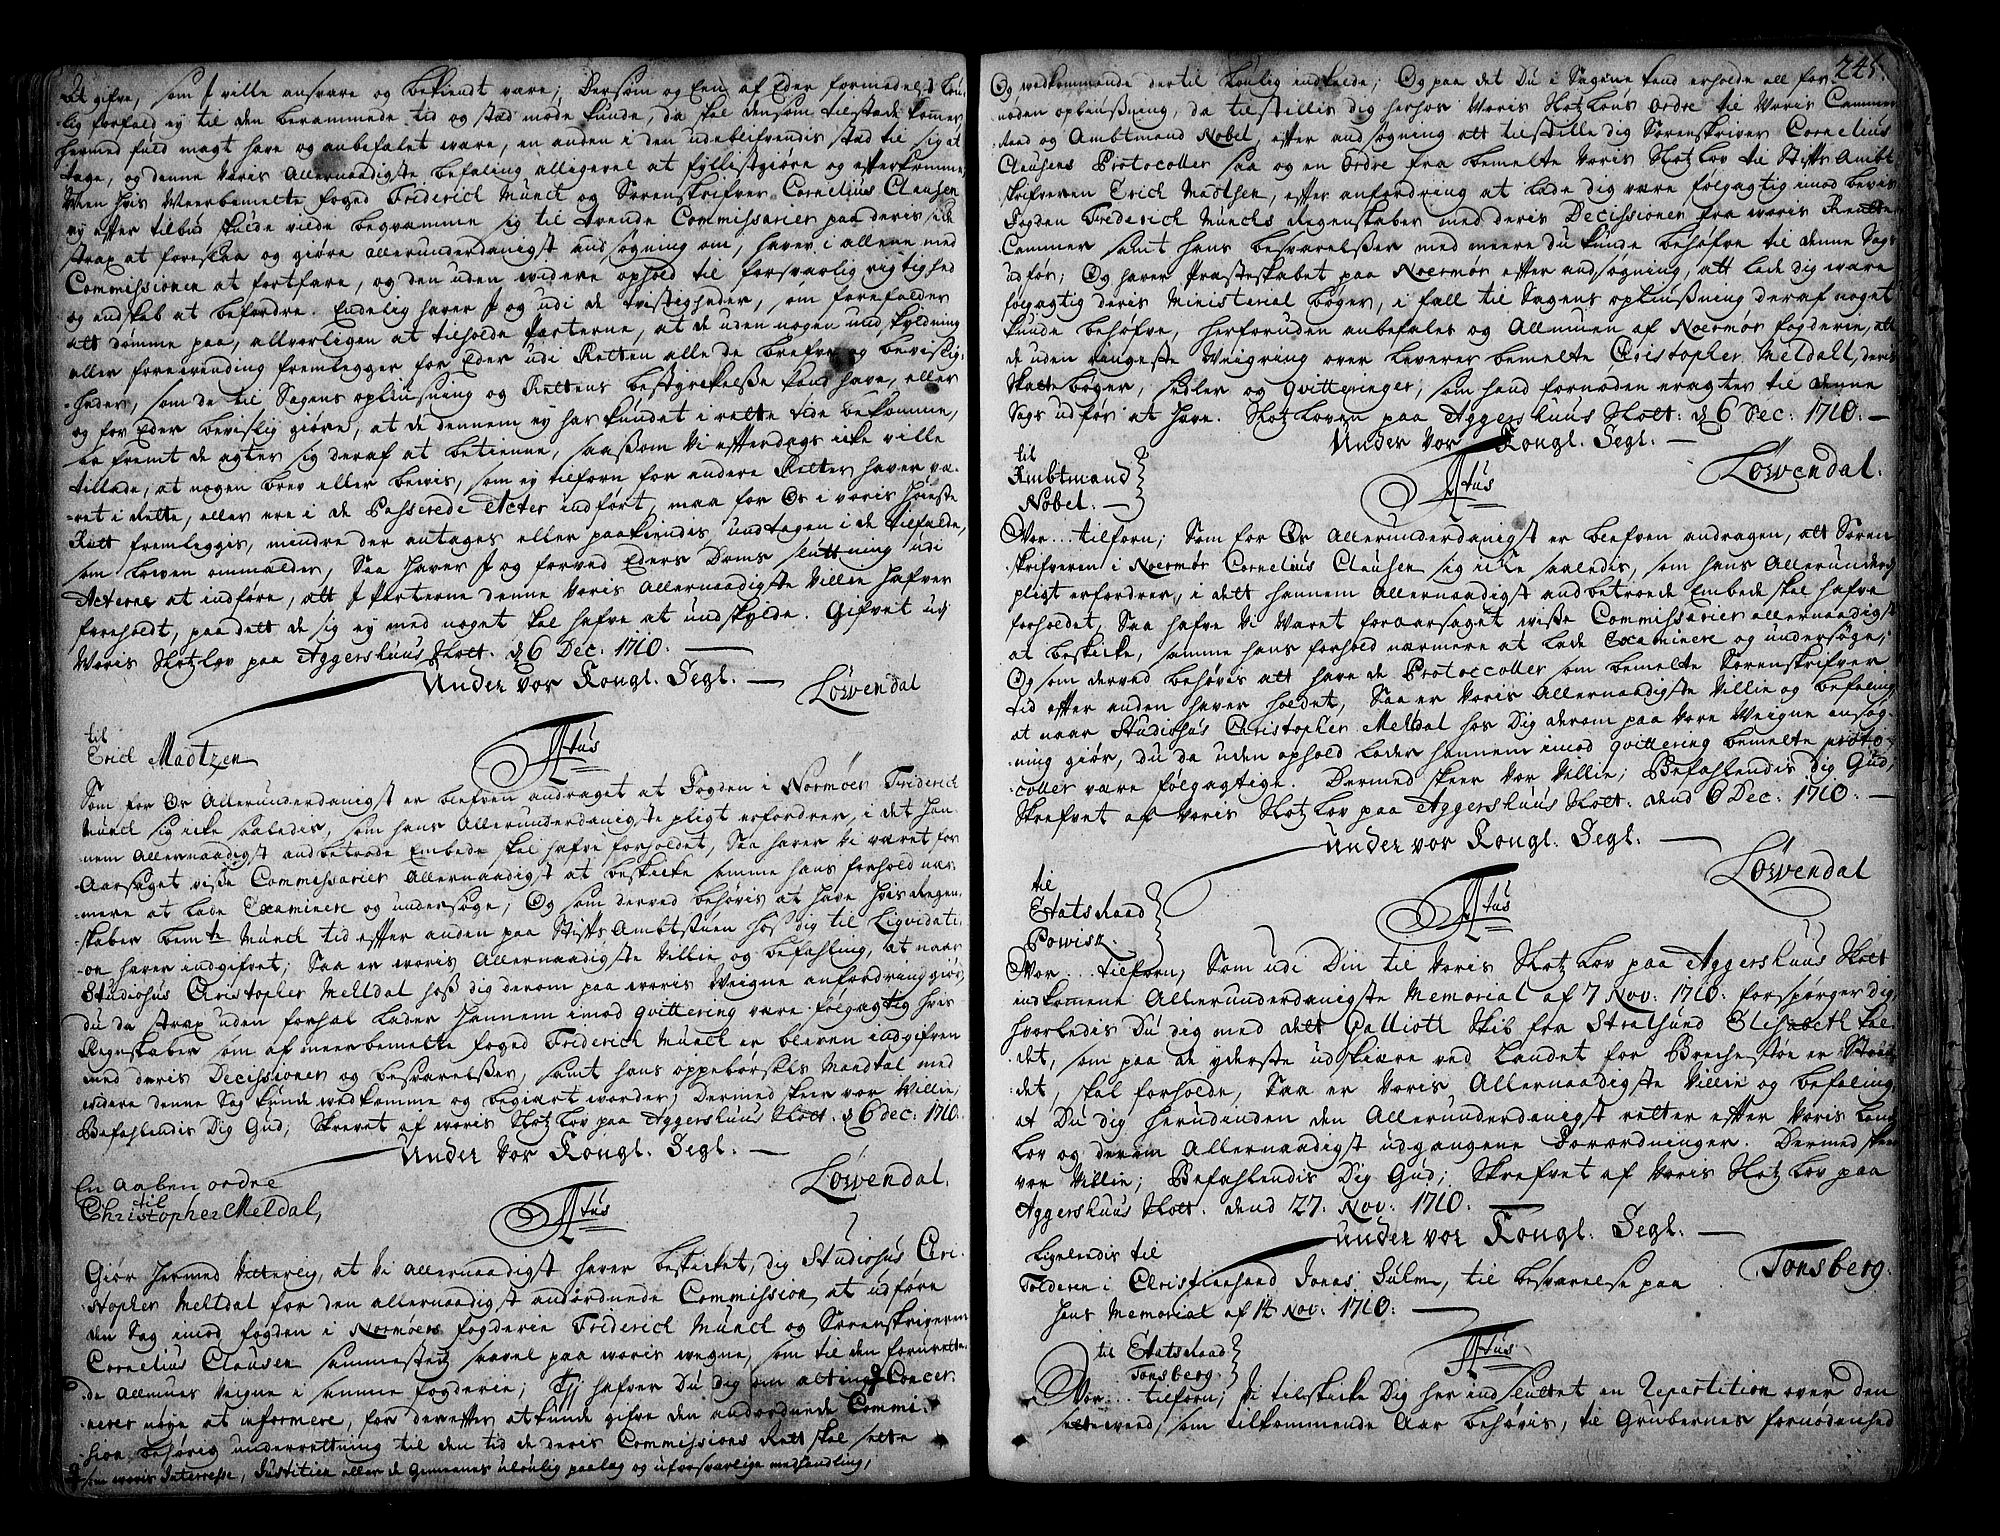 at gifve, som I ville ansvare og bekiendt vare; Dersom og Een af Eder formedelst lou-
lig forfald ey til den berammede tid og stad møde kunde, da skal den som tilstæde kommer
hermed fuld magt have og anbefalet være, en anden i den udeblifvendis stad til sig at
tage, og denne Voris Allernaadigste befaling alligevel at fyllistgiøre og efterkomme,
Men hvis Meerbemelte foged Friderich Münch og Sørenskrifver Cornelius Clausen
ey effter tilbud skulde vilde beqvemme sig til tvende Commissarier paa deris side
strax at foreslaa og giøre allerunderdanigst ansøgning om, haver i allene med
Commissionen at fortfare, og den uden videre ophold til forsvarlig rigtighed
og endskab at befordre. Endelig haver I og udi de tvistigheder, som forefalder
att dømme paa, allvorligen at tilholde Parterne, at de uden nogen undskyldning
eller forevending fremlegger for Eder udi Retten alle de brefve og bevislig-
heder, som de til Sagens oplüsning og Rettens bestyrckelsße kand have, eller
og for Eder bevislig giøre, at de dennem ey har kundet i rette tide bekomme,
saa fremt de agter sig deraf at betienne, saasom Vi effterdags icke ville
tillade, at nogen brev eller bevis, som ey tilforn for andre Retter haver væ-
ret i Rette, eller ere i de Passerede Acter indført, maa for Os i voris Høieste
Rett fremleggis, mindre der antages eller paakiendis, undtagen i de tilfælde,
som Lowen ommælder, Saa haver I og forved Eders Doms sluttning udi
Acterne at indføre, att I Parterne denne Voris Allernaadigste Villie hafver
foreholdt, paa dett de sig ey med noget skal hafve at undskylde. Gifvet udj
Voris Slotz Lov paa Aggershuus Slott. d 6 Dec: 1710.
Under vor Kongl. Segl.
Löwendal
til
Erich Madtzen
F4tus
Som for Os Allerunderdanigst er blefven andraget at Fogden i Normøer Friderich
Münch sig icke saaledis, som hans Allerunderdanigste pligt erfordrer, i det han-
nem Allernaadigst anbetroede Embede skal hafve forholdet, Saa haver Vi været for-
Aarsaget visße Commissarier Allernaadigst at beskicke samme hans forhold nær-
mere at lade Examinere og undersøge; Og som derved behøvis at have hvis Regen-
skaber bem.te Münch tid effter anden paa Stiffts Ambtstuen hos dig til Liqvidati-
on haver indgifvet; Saa er voris Allernaadigste Villie og befahling, at naar
Studiosus Christopher Melldal hoß dig derom paa voris Veigne anfordring giør,
du da strax uden forhal lader hannem imod qvittering være følgagtig hvis
Regnskaber som af meerbemelte foged Friderich Münch er bleven indgifven
med deris Decissioner og besvarelßer, samt hans oppebørsels Mandtal med
videre denne Sag kunde vedkomme og begiært worder; Dermed skeer vor Villie,
Befahlendis Dig Gud; Skrevet af voris Slotz Lov paa Aggershuus Slott. d 6 Dec: 1710.
Under vor Kongl. Segl.
Löwendal.
En aaben ordre
til
Christopher Meldal,
F4tus
Giør hermed Vitterlig, at Vi Allernaadigst haver beskicket, dig Studiosus Chri-
stopher Melldal for den allernaadigst anordnede Commission at udføre
den Sag imod fogden i Normøers fogderie Friderich Münch og Sørenskriveren
Cornelius Clausen sammesteds saavel paa voris vegne, som til den fornrette-
de Allmues Veigne i samme fogderie; Thj hafver Du dig om alting Concer-
nerer nøye at informere, for dereffter at kunde gifve den anordnede Commi-
sion behørig underrettning til den tid de deris Commissions Rett skal sette
som voris Interresse, Justitien eller de Gemeenes ulovlig paalæg og uforsvarlige medhandling,
245.
Og vedkommende dertil louglig indkalde; Og paa det Du i Sagene kand erholde all for-
noden oplüsßning, da tilstillis dig herhos Voris Slotz Lous Ordre til Voris Cammer
Raad og Ambtmand Nobel, effter ansøgning att tilstelle dig Sørenskriver Cornelius
Clausens Protocoller saa og en Ordre fra bemelte Voris Slotz Lov til Stiffts Ambt-
skrifveren Erich Madtsen, effter anfordring at lade dig være følgagtig imod bevis
Fogden Frederich Münchs Regenskaber med deris Decissioner fra voris Rentte
Cammer samt hans besvarelsßer med meere du kunde behøfve til denne Sags
udfør; Og haver Præsteskabet paa Noermør effter ansøgning, att lade dig være
følgagtig deris Ministerial bøger, i fall til Sagens oplüsßning deraf noget
kunde behøfves, herforuden anbefales og Allmuen af Noermør fogderie, att
de uden ringeste Veigring over leverer bemelte Christopher Meldall, deris
Skattebøger, sedler og qvitteringer, som hand fornøden eragter til denne
Sags udfør at have. Slotz Loven paa Aggershuus Slott. d 6 Dec: 1710.
Under vor Kongl. Segl.
Löwendal.
til
Ambtmand
Nobel.
F4tus
Vor... tilforn; Som for Os Allerunderdanigst er blefven andragen, att Søren-
skrifveren i Noermør Cornelius Clausen sig icke saaledis, som hans Allerunderd.
pligt erfordrer, i dett hannem Allernaadigst anbetroede Embede skal hafve
forholdet, Saa hafve Vi Waret foraarsaget wisße Commissarier allernaadigst
at beskicke, samme hans forhold nærmere at lade Examinere og undersøge,
Og som derved behøvis att have de Protoccoller som bemelte Sørenskrifver
tid effter anden haver holdet, Saa er Voris Allernaadigste Villie og befaling
at naar Studiosus Christopher Meldal hos Dig derom paa Vore Veigne ansøg-
ning giør, du da uden ophold lader hannem imod qvittering bemelte proto-
coller være følgagtige. Dermed skeer Vor Villie; Befahlendis Dig Gud;
Skrefvet af Voris Slotz Lov paa Aggershuus Slott. dend 6 Dec: 1710.
under vor Kongl. Segl.
Löwendal
til
Etats Raad
Powisz.
F4tus
Vor... tilforn, Som udi Din til Voris Slotz Lov paa Aggershuus Slott
indkomene Allerunderdanigste Memorial af 7 Nov: 1710. forspørger dig,
hvorledis Du dig med dett Galliott Skib fra Stralsund Elisabeth kal-
det, som paa de yderste udskiære ved Landet for Brechestøe er Stran-
det, skal forholde, Saa er Voris Allernaadigste Villie og befaling,
at Du dig herudinden den Allerunderdanigst retter effter Voris Lands
Lov og derom Allernaadigst udgangene Forordninger. Dermed skeer
vor Villie; Befahlendis Dig Gud; Skrefvet af Voris Slotz Lov paa
Aggershuus Slott. dend 27. Nov: 1710.
under vor Kongl. Segl.
Tonsberg.
Ligeledis til
Tolderen i Christiansand Jonas Sülm, til besvarelse paa
hans Memorial af 14 Nov: 1710.
til Etats Raad
Tonsberg.
F4tus
Vor... tilforn; Vi tilskicke Dig her indsluttet en Repartition over den
, som tilkommende Aar behøvis, til Grubernes fornødenhed